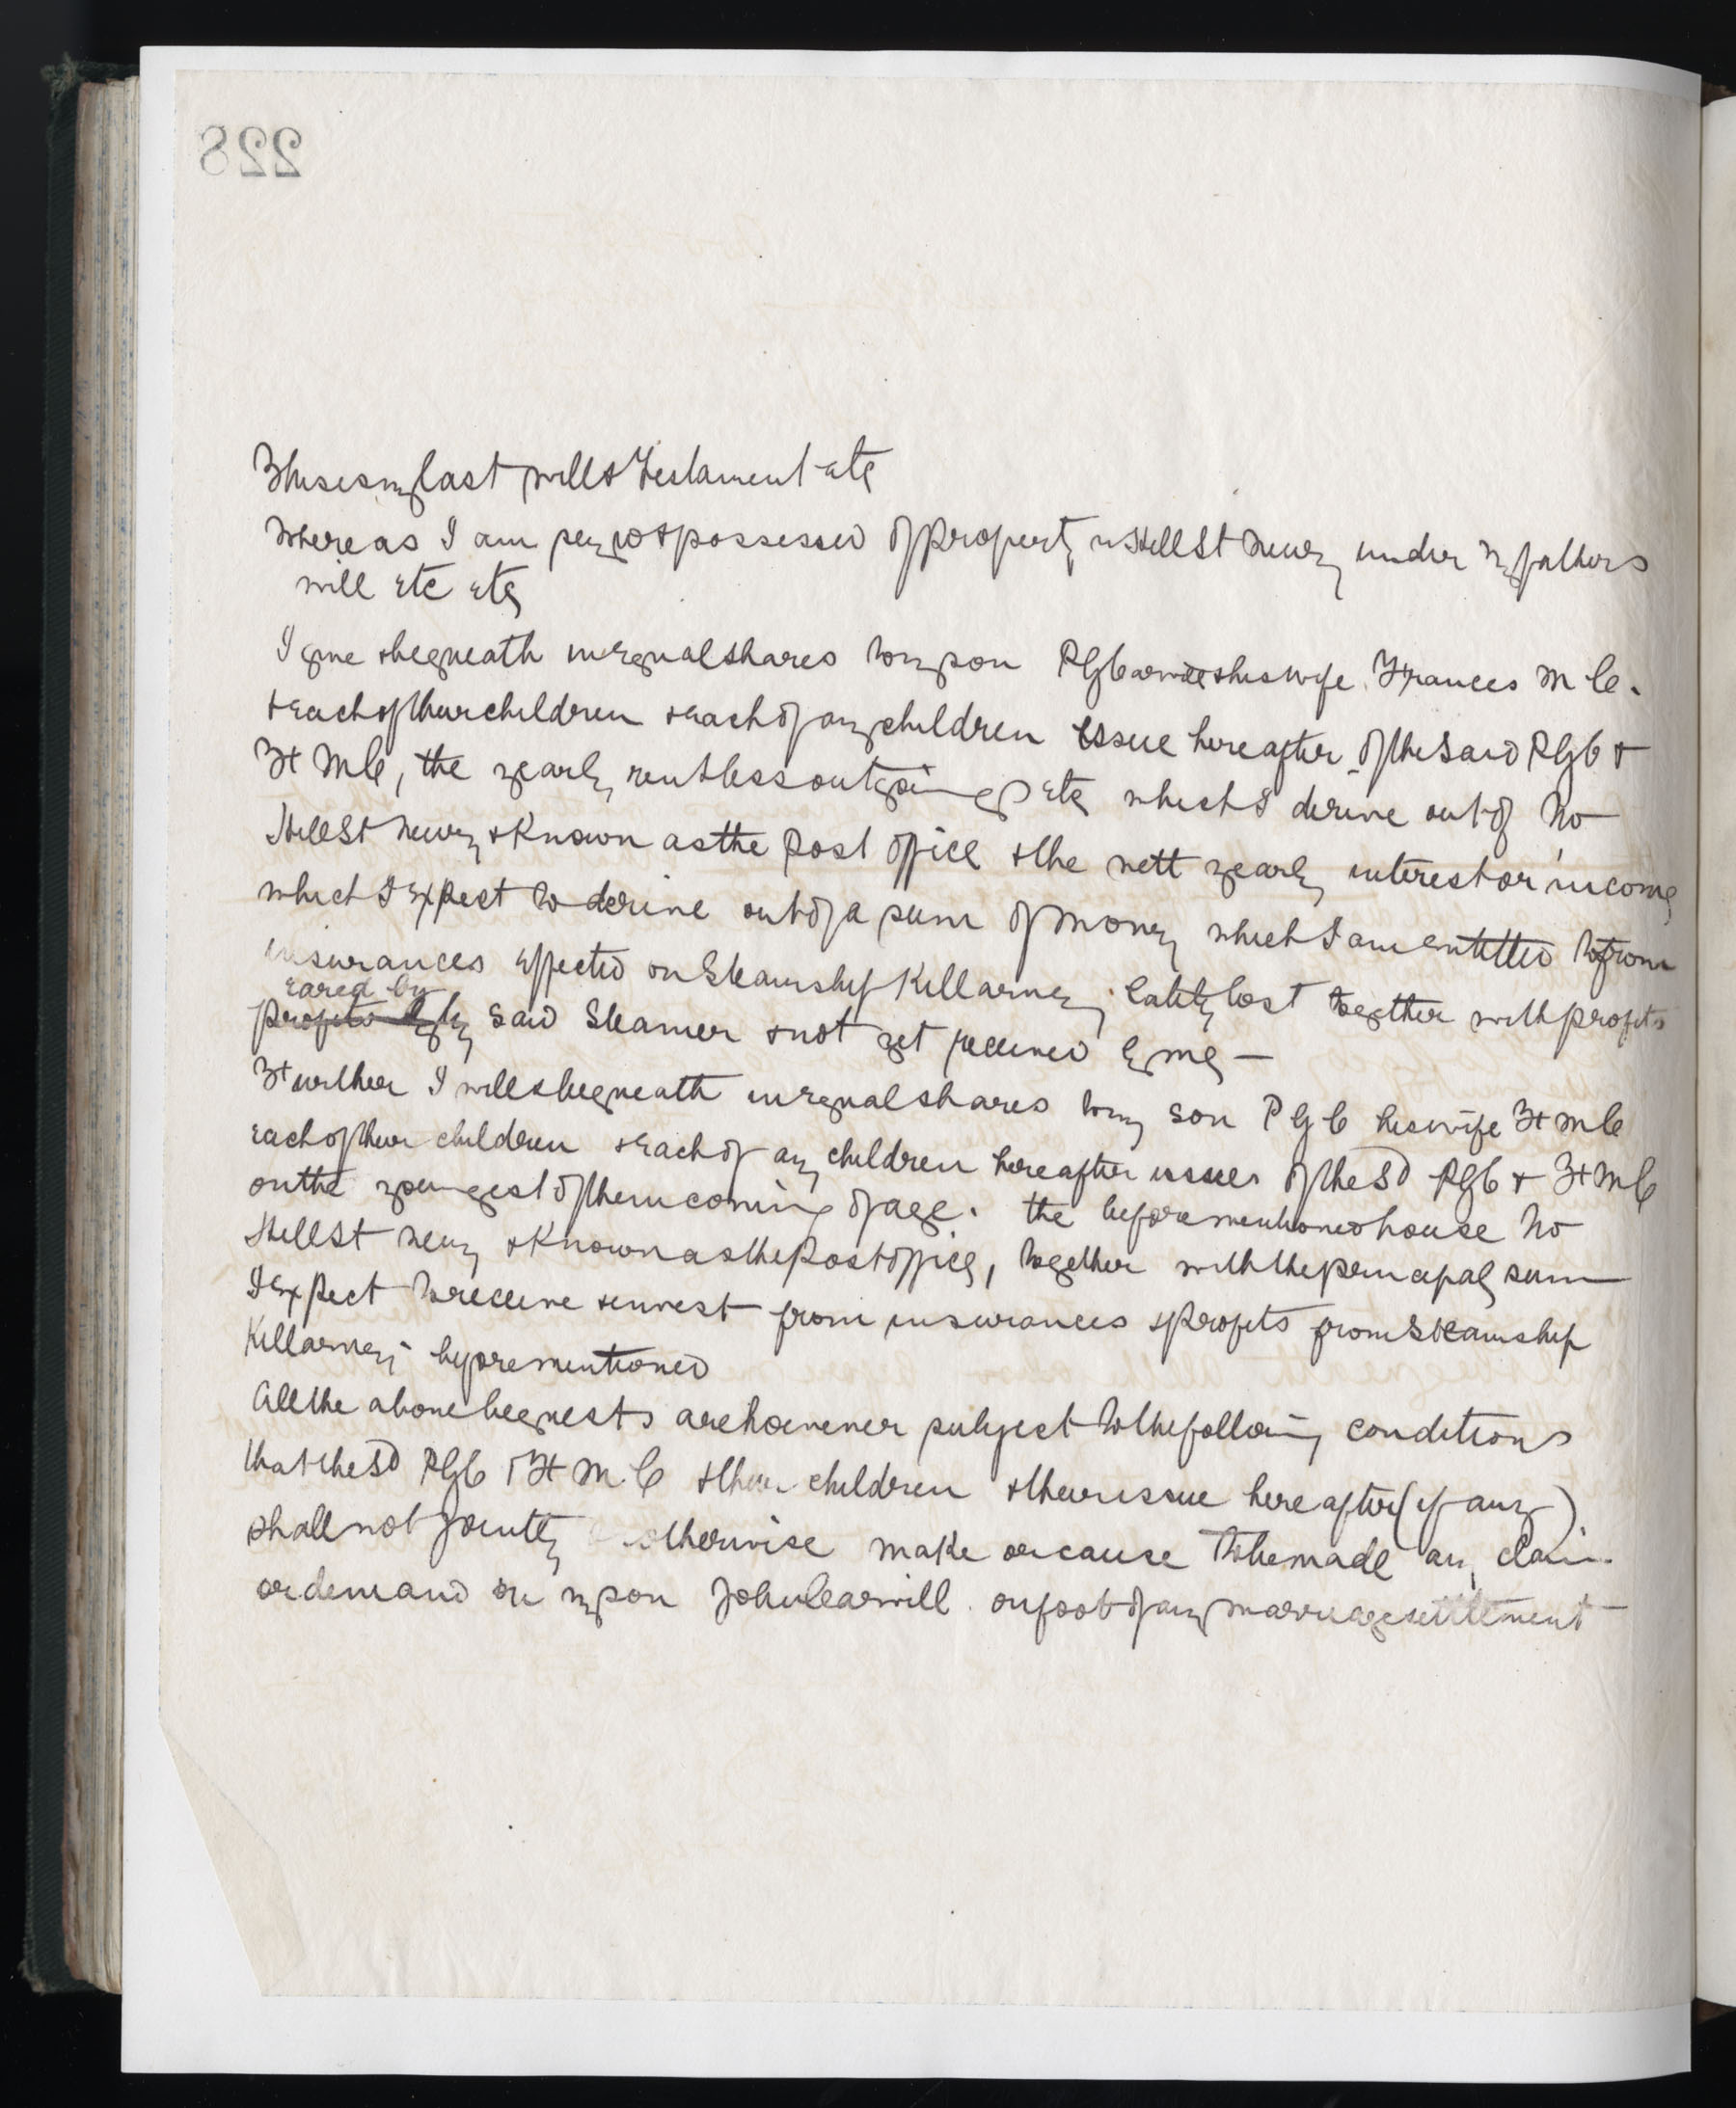 228
This is my last will & Testament etc
Whereas I am seized & possessed of property in Hill St Newry under my fathers
will etc etc
I give & bequeath in equal shares to my son P G Carvill & his wife Frances M C.
& each of their children & each of any children issue hereafter of the said P G C &
F M C, the yearly rent less outgoings etc which I derive out of No
Hill St Newry & known as the Post Office & the nett yearly interest or income
which I expect to derive out of a sum of money which I am entitled to from
insurances effected on Steamship Killarney, lately lost together with profits
earned by
profits said Steamer & not yet received by me —
Further I will & bequeath in equal shares to my son P G C his wife F M C
each of their children & each of any children hereafter issue of the sd P G C & F M C
on the youngest of them coming of age. the beforementioned house No
Hill St Newry & known as the Post office, together with the principal sum
I expect to receive & invest from insurances & profits from Steamship
Killarney beforementioned
All the above bequests are however subject to the following conditions
that the sd P G C & F M. C & their children & their issue hereafter (if any)
shall not jointly otherwise make or cause to be made any claim
or demand on my son John Carvill on foot of any marriage settlement